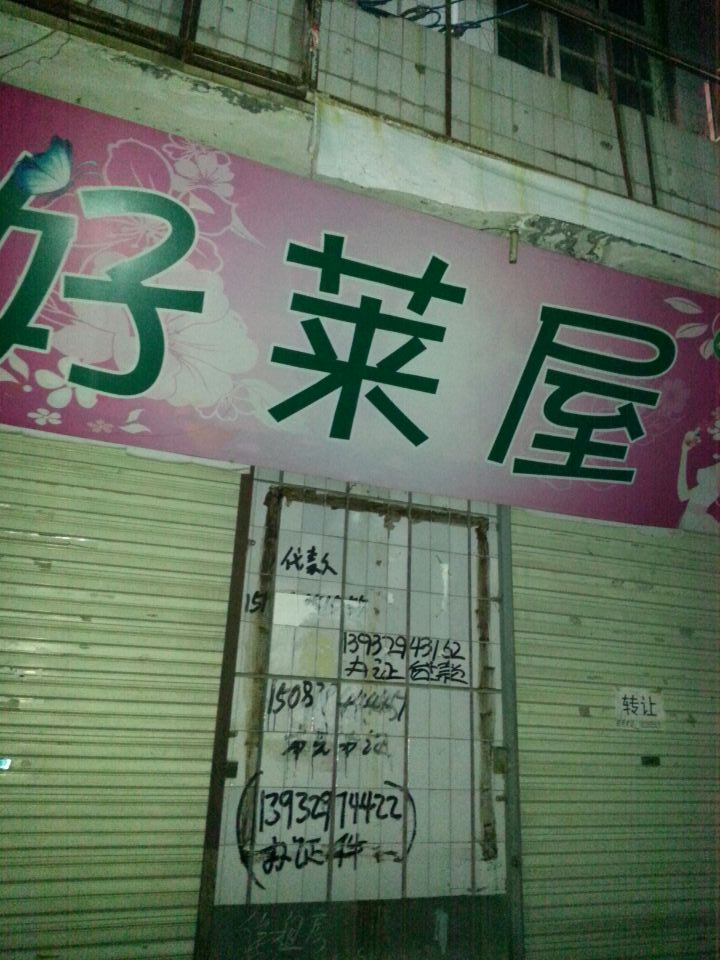 好莱屋
代款
151
13932943152
办证 贷款
1508
转让
(13932974422
办证件)